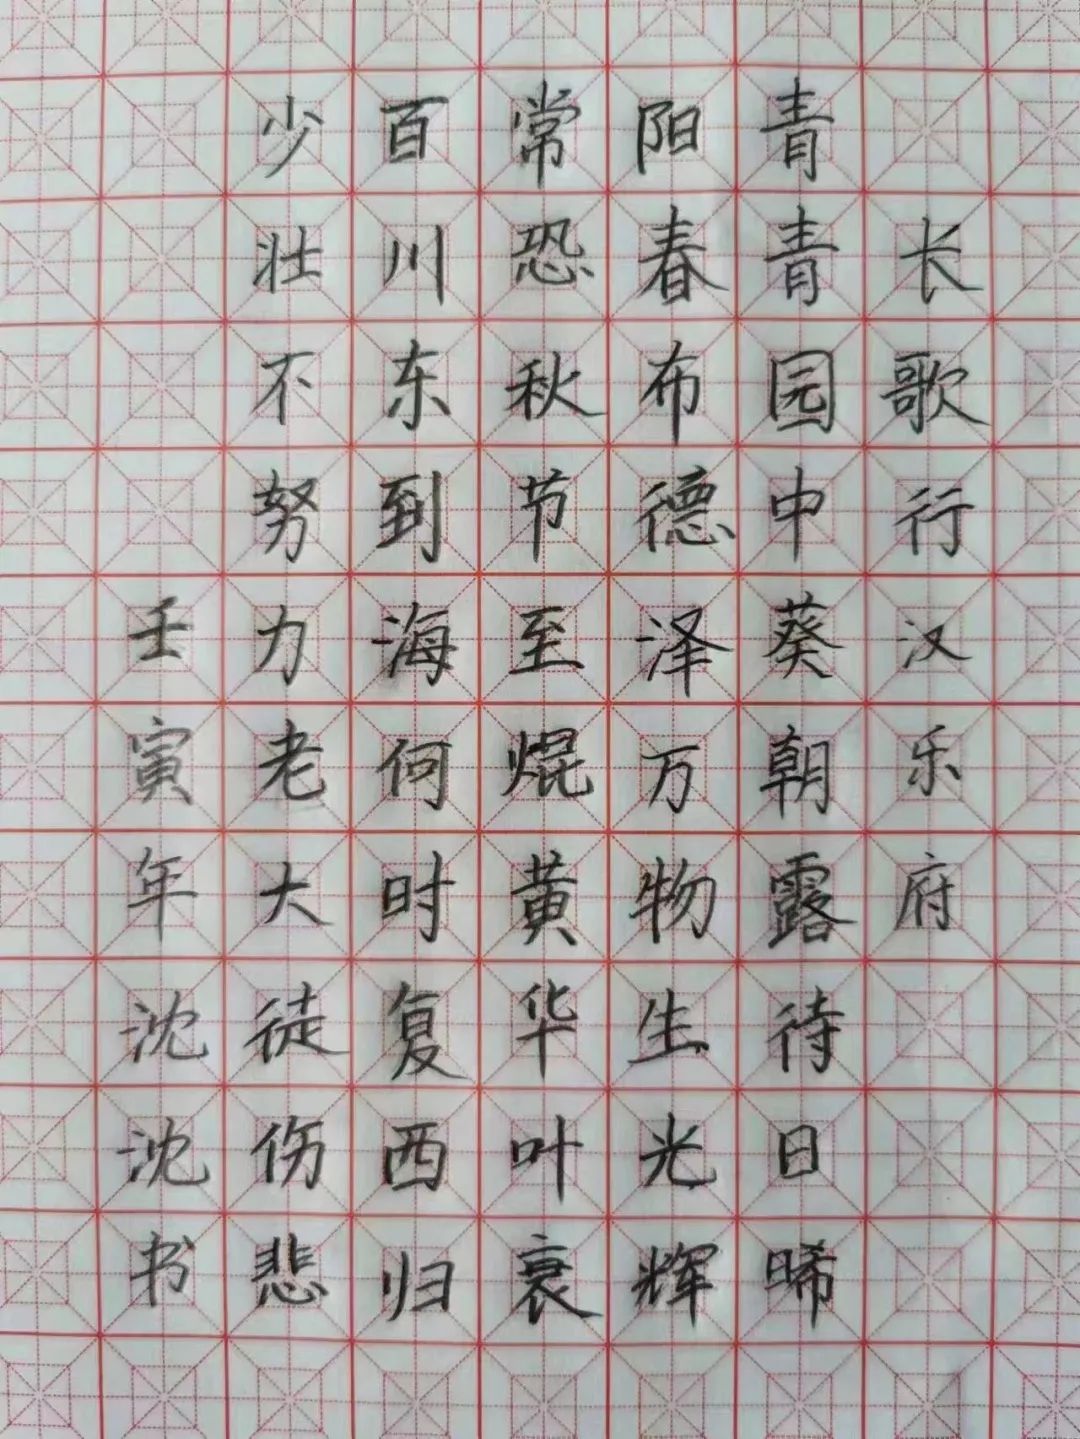 长歌行汉乐府
青青园中葵朝露待日晞
阳春布德泽万物生光辉
常恐秋节至焜黄华叶衰
百川东到海何时复西归
少壮不努力老大徒伤悲
壬寅年沈沈书